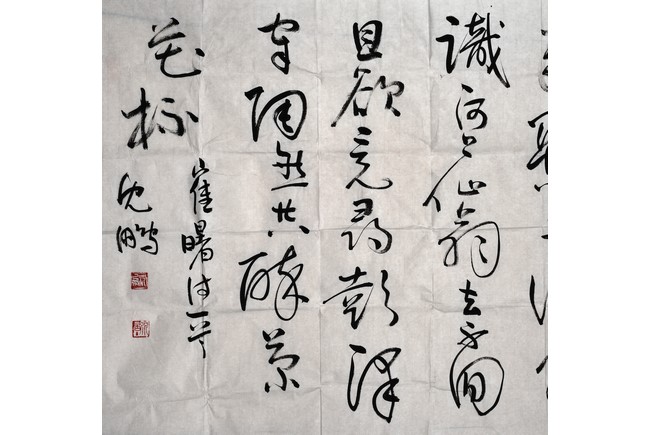 識河上仙翁去不回
且欲竟尋彭澤
宰陶然共醉菊
花杯
崔曙诗一首
沈鹏